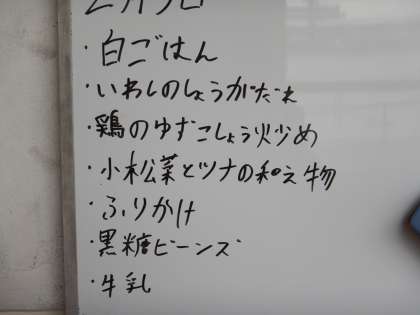 ・白ごはん
・いわしのしょうがだれ
・鶏のゆずこしょう炒め
・小松菜とツナの和え物
・ふりかけ
・黒糖ビーンズ
・牛乳